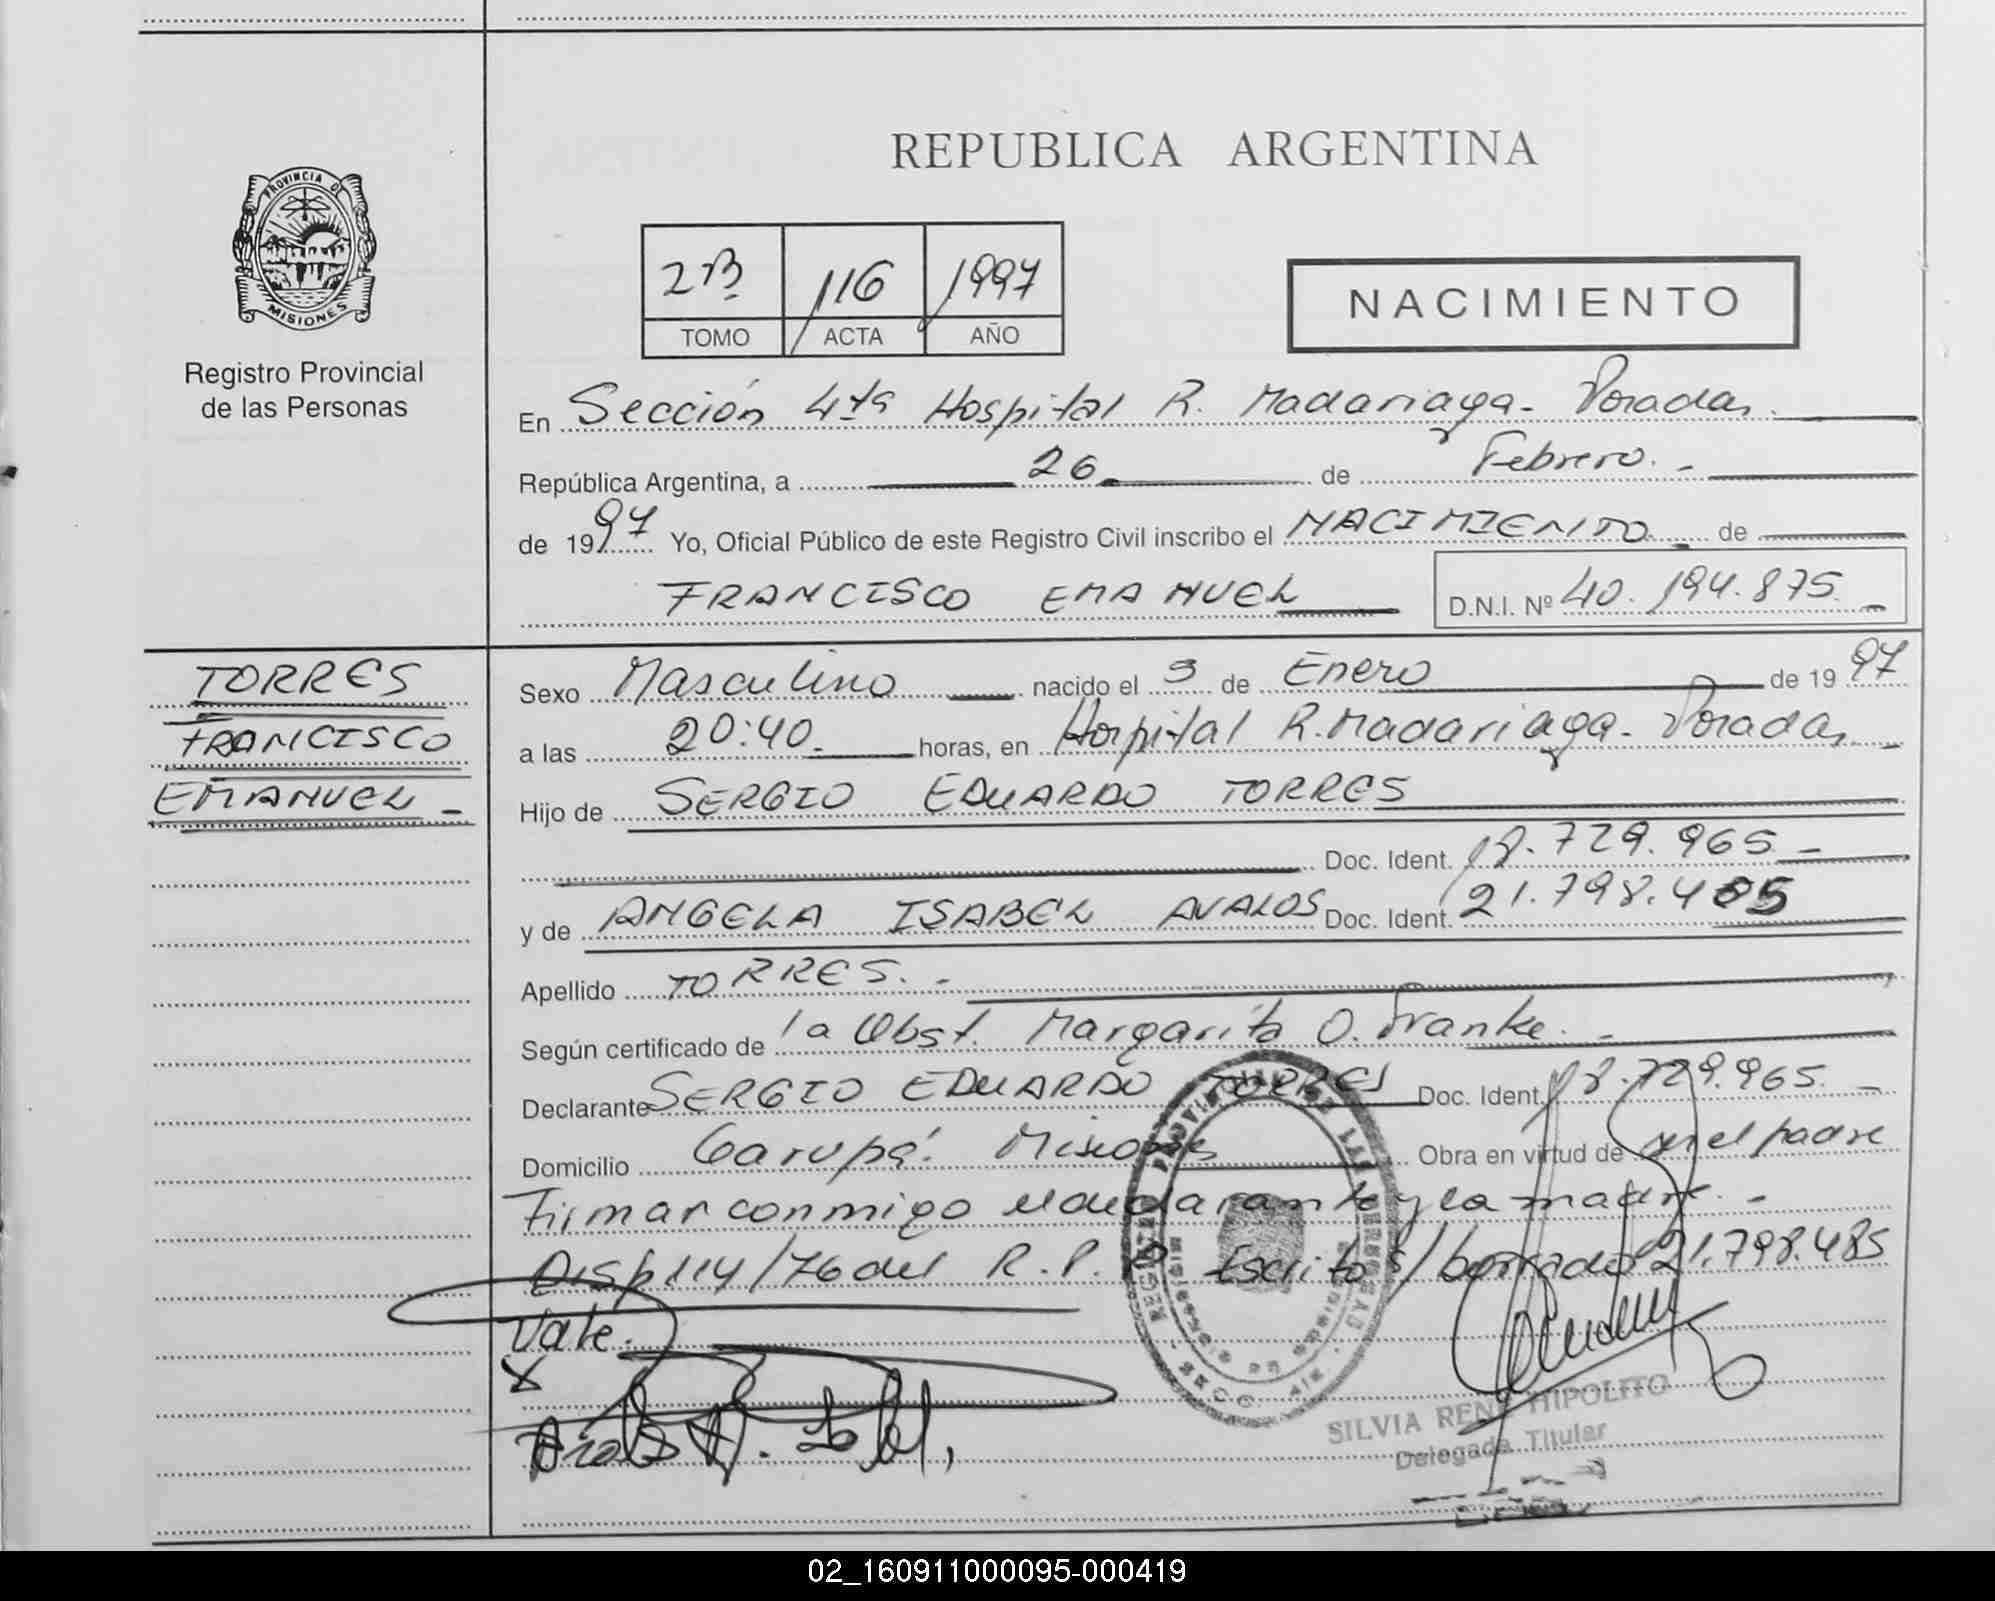 REPUBLICA ARGENTINA
PROVINCIA DE
MISIONES
Registro Provincial
de las Personas
2B 116 1997
TOMO ACTA AÑO
NACIMIENTO
En Sección 4ta Hospital R. Madariaga - Posadas.
República Argentina, a 26 de Febrero. -
de 1997 Yo, Oficial Público de este Registro Civil inscribo el NACIMIENTO. de
FRANCISCO EMANUEL D.N.I. Nº 40.194.875 -
TORRES
FRANCISCO
EMANUEL -
Sexo Masculino nacido el 3 de Enero de 1997
a las 20:40. horas, en Hospital R. Madariaga - Posadas, -
Hijo de SERGIO EDUARDO TORRES
Doc. Ident. 18.729.965 -
y de ANGELA ISABEL AVALOS Doc. Ident. 21.798.485
Apellido TORRES. -
Según certificado de la Obst. Margarita O. Franke. -
Declarante SERGIO EDUARDO TORRES Doc. Ident. 18.729.965. -
Domicilio Garupá. Misiones Obra en virtud de ser el padre
Firman conmigo el declarante y la madre. -
Disp 114/76 del R.P.P. Escrito s/borrado 21.798.485
Vale.
SILVIA RENE HIPOLITO
Delegada Titular
02_160911000095-000419